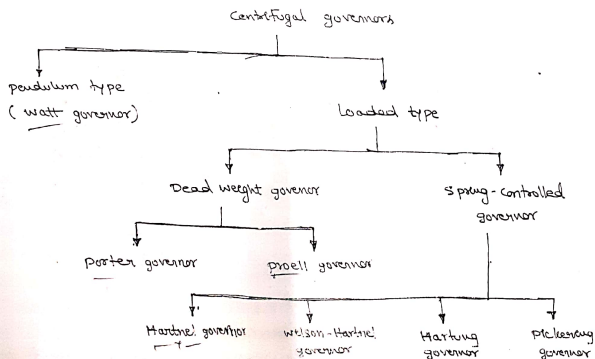 Centrifugal governors
pendulum type
(watt governor)
Loaded type
Dead weight govenor
Spring-controlled
governor
porter governor
proell governor
Hartnel governor
Wilson-Hartnel
governor
Hartung
governor
Pickering
governor